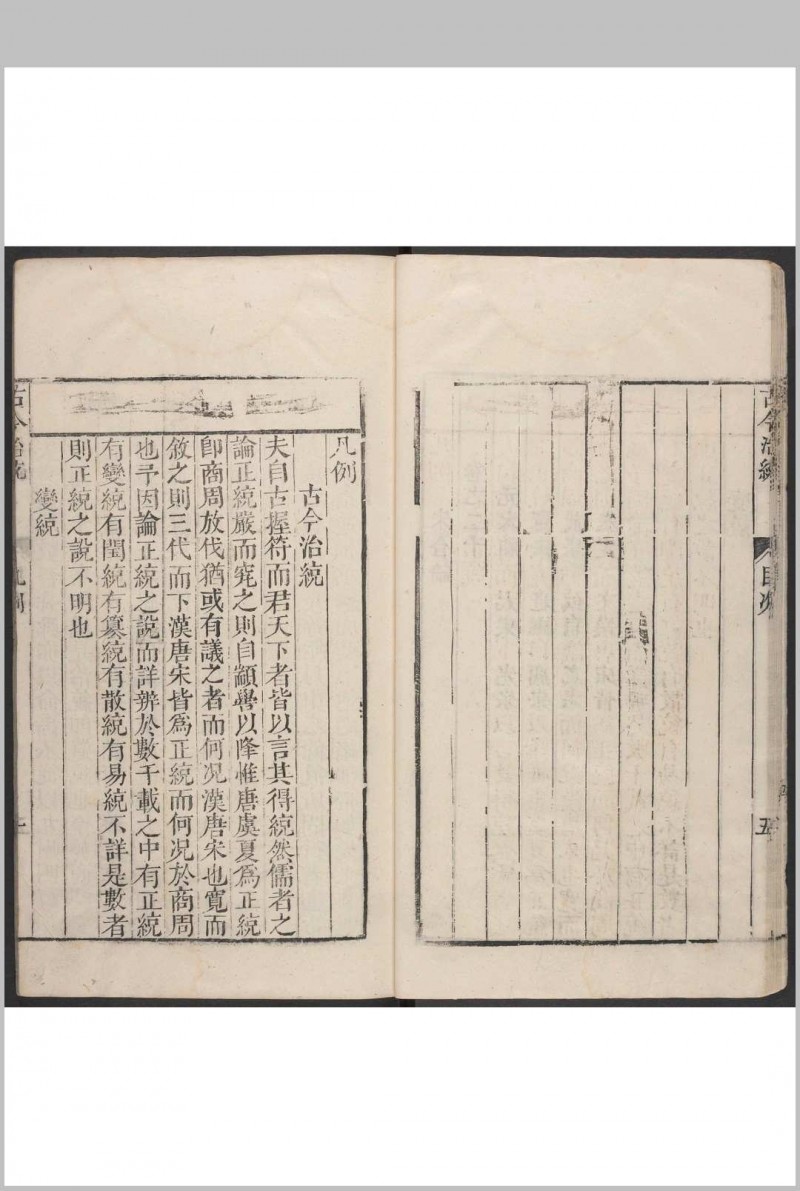 古今治統
目次
五
凡例
古今治統
夫自古握符而君天下者皆以言其得統然儒者之
論正統嚴而究之則自顓嚳以降惟唐虞夏爲正統
卽商周放伐猶或有議之者而何况漢唐宋也寬而
敘之則三代而下漢唐宋皆爲正統而何况於商周
也予因論正統之說而詳辨於數千載之中有正統
有變統有閏統有纂統有散統有易統不詳是數者
則正統之說不明也
變統
古今治統
凡例
一